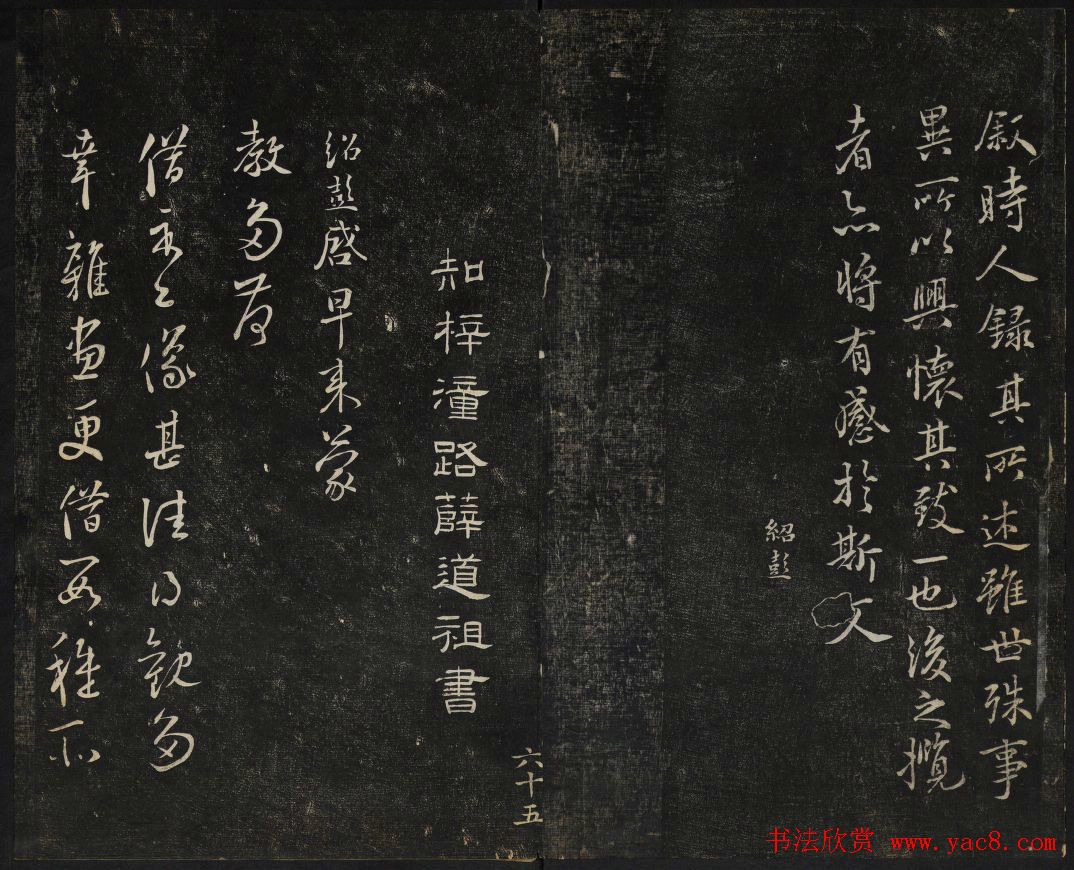 叙時人録其所述雖世殊事
異所以興懷其致一也後之攬
者亦將有感於斯文
紹彭
六十五
知梓潼路薛道祖書
紹彭啓早来蒙
教多荷
借示之像甚佳得観多
幸雜画更借要稚不
书法欣赏 www.yac8.com